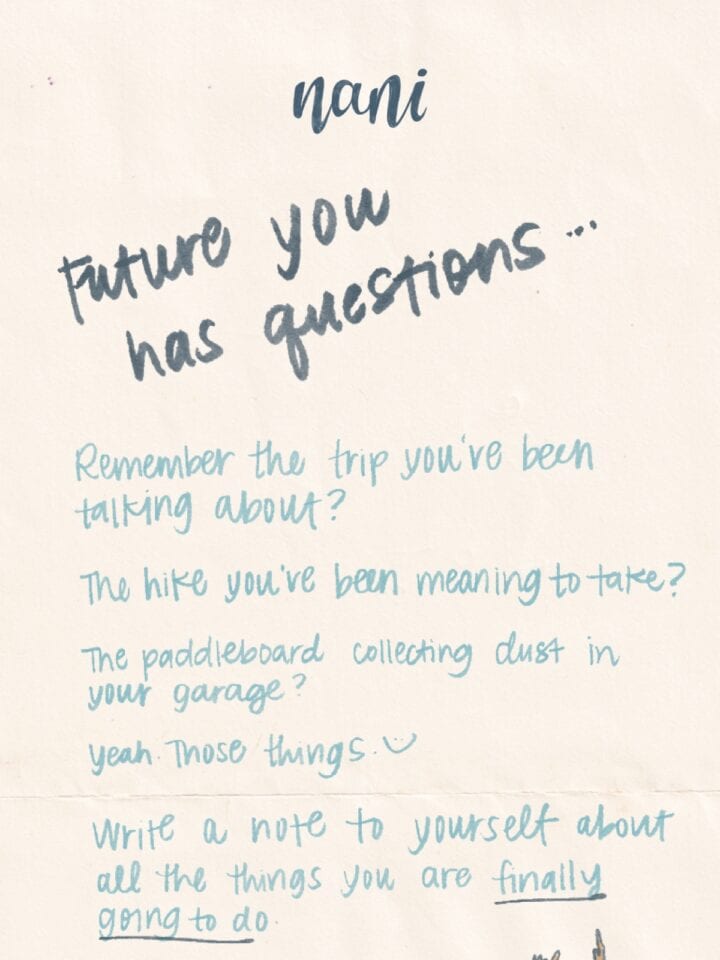 nani
Future you
has questions...
Remember the trip you've been
talking about?
The hike you've been meaning to take?
The paddleboard collecting dust in
your garage?
yeah. Those things.
Write a note to yourself about
all the things you are finally
going to do.